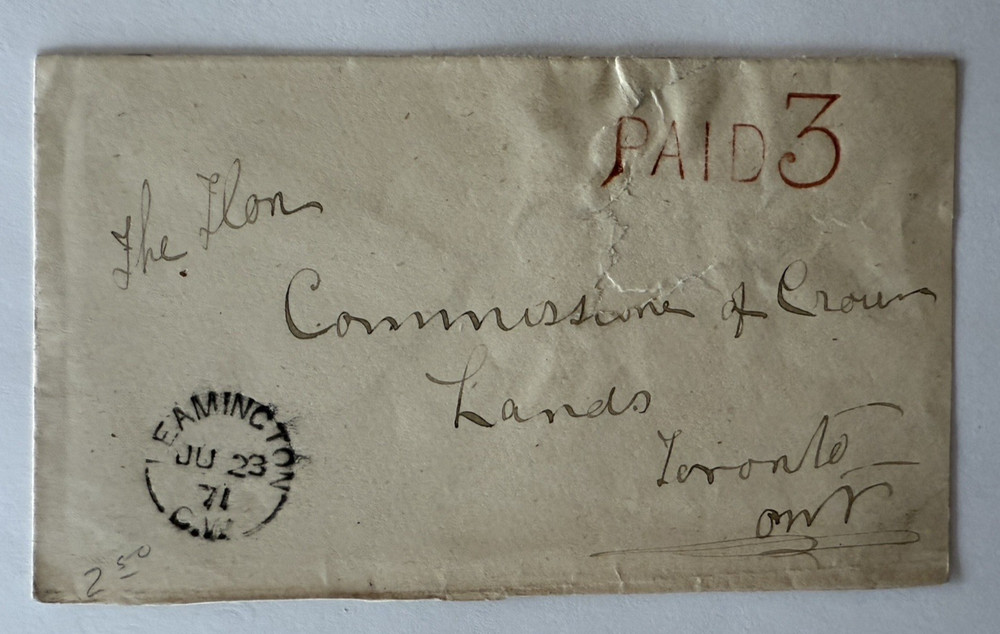 PAID 3
The Hon
Commissioner of Crown
Lands
Toronto
Ont
LEAMINGTON
JU 23
71
C.W.
2 50